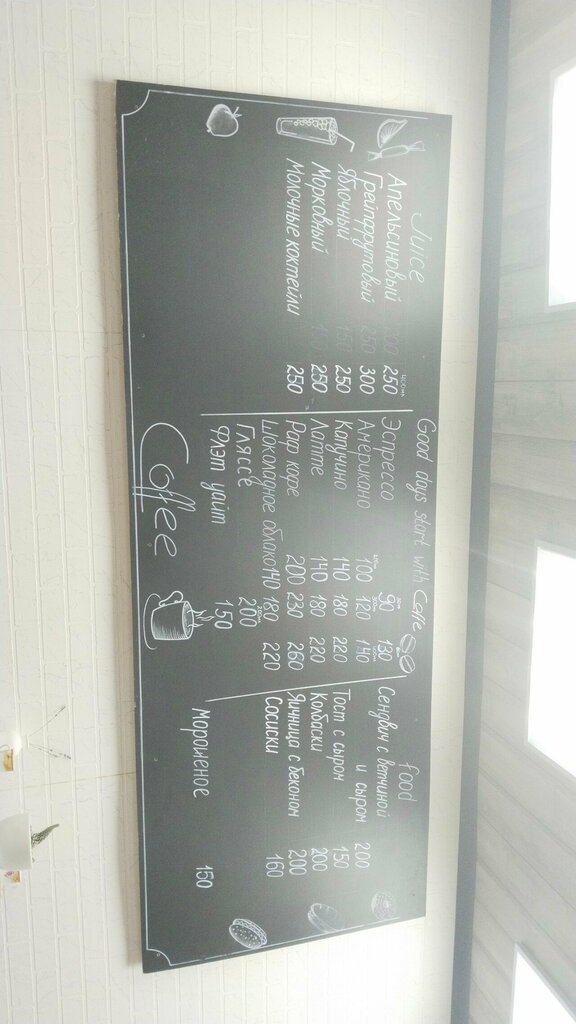 Juice
400мл
Апельсиновый 250
Грейпфрутовый 250 300
Яблочный 150 250
Морковный 250
Молочные коктейли 250
Good days start with Coffe
Эспрессо 90 130
Американо 100 120 140
Капучино 140 180 220
Латте 140 180 220
Раф кофе 200 230 260
Шоколадное облако 140 180 220
Гляссе 200
Флэт уайт 150
Coffee
food
Сендвич с ветчиной
и сыром 200
Тост с сыром 150
Колбаски 200
Яичница с беконом 200
Сосиски 160
Мороженое 150